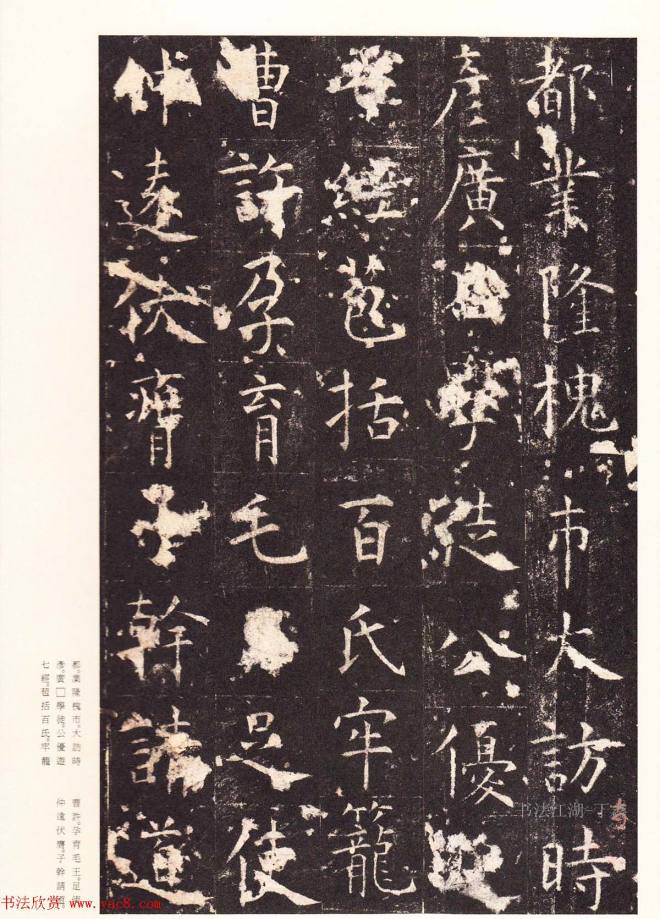 都業隆槐市大訪時
彦廣學徒公優
經苞括百氏牢籠
曹許孕育毛足使
仲遠伏膺子幹請道
都業隆槐市。大訪時
彥。廣□學徒。公優遊
七經。苞括百氏。牢籠
曹許。孕育毛王。足使
仲遠伏膺。子幹請
书法江湖-丁
书法欣赏 www.yac8.com